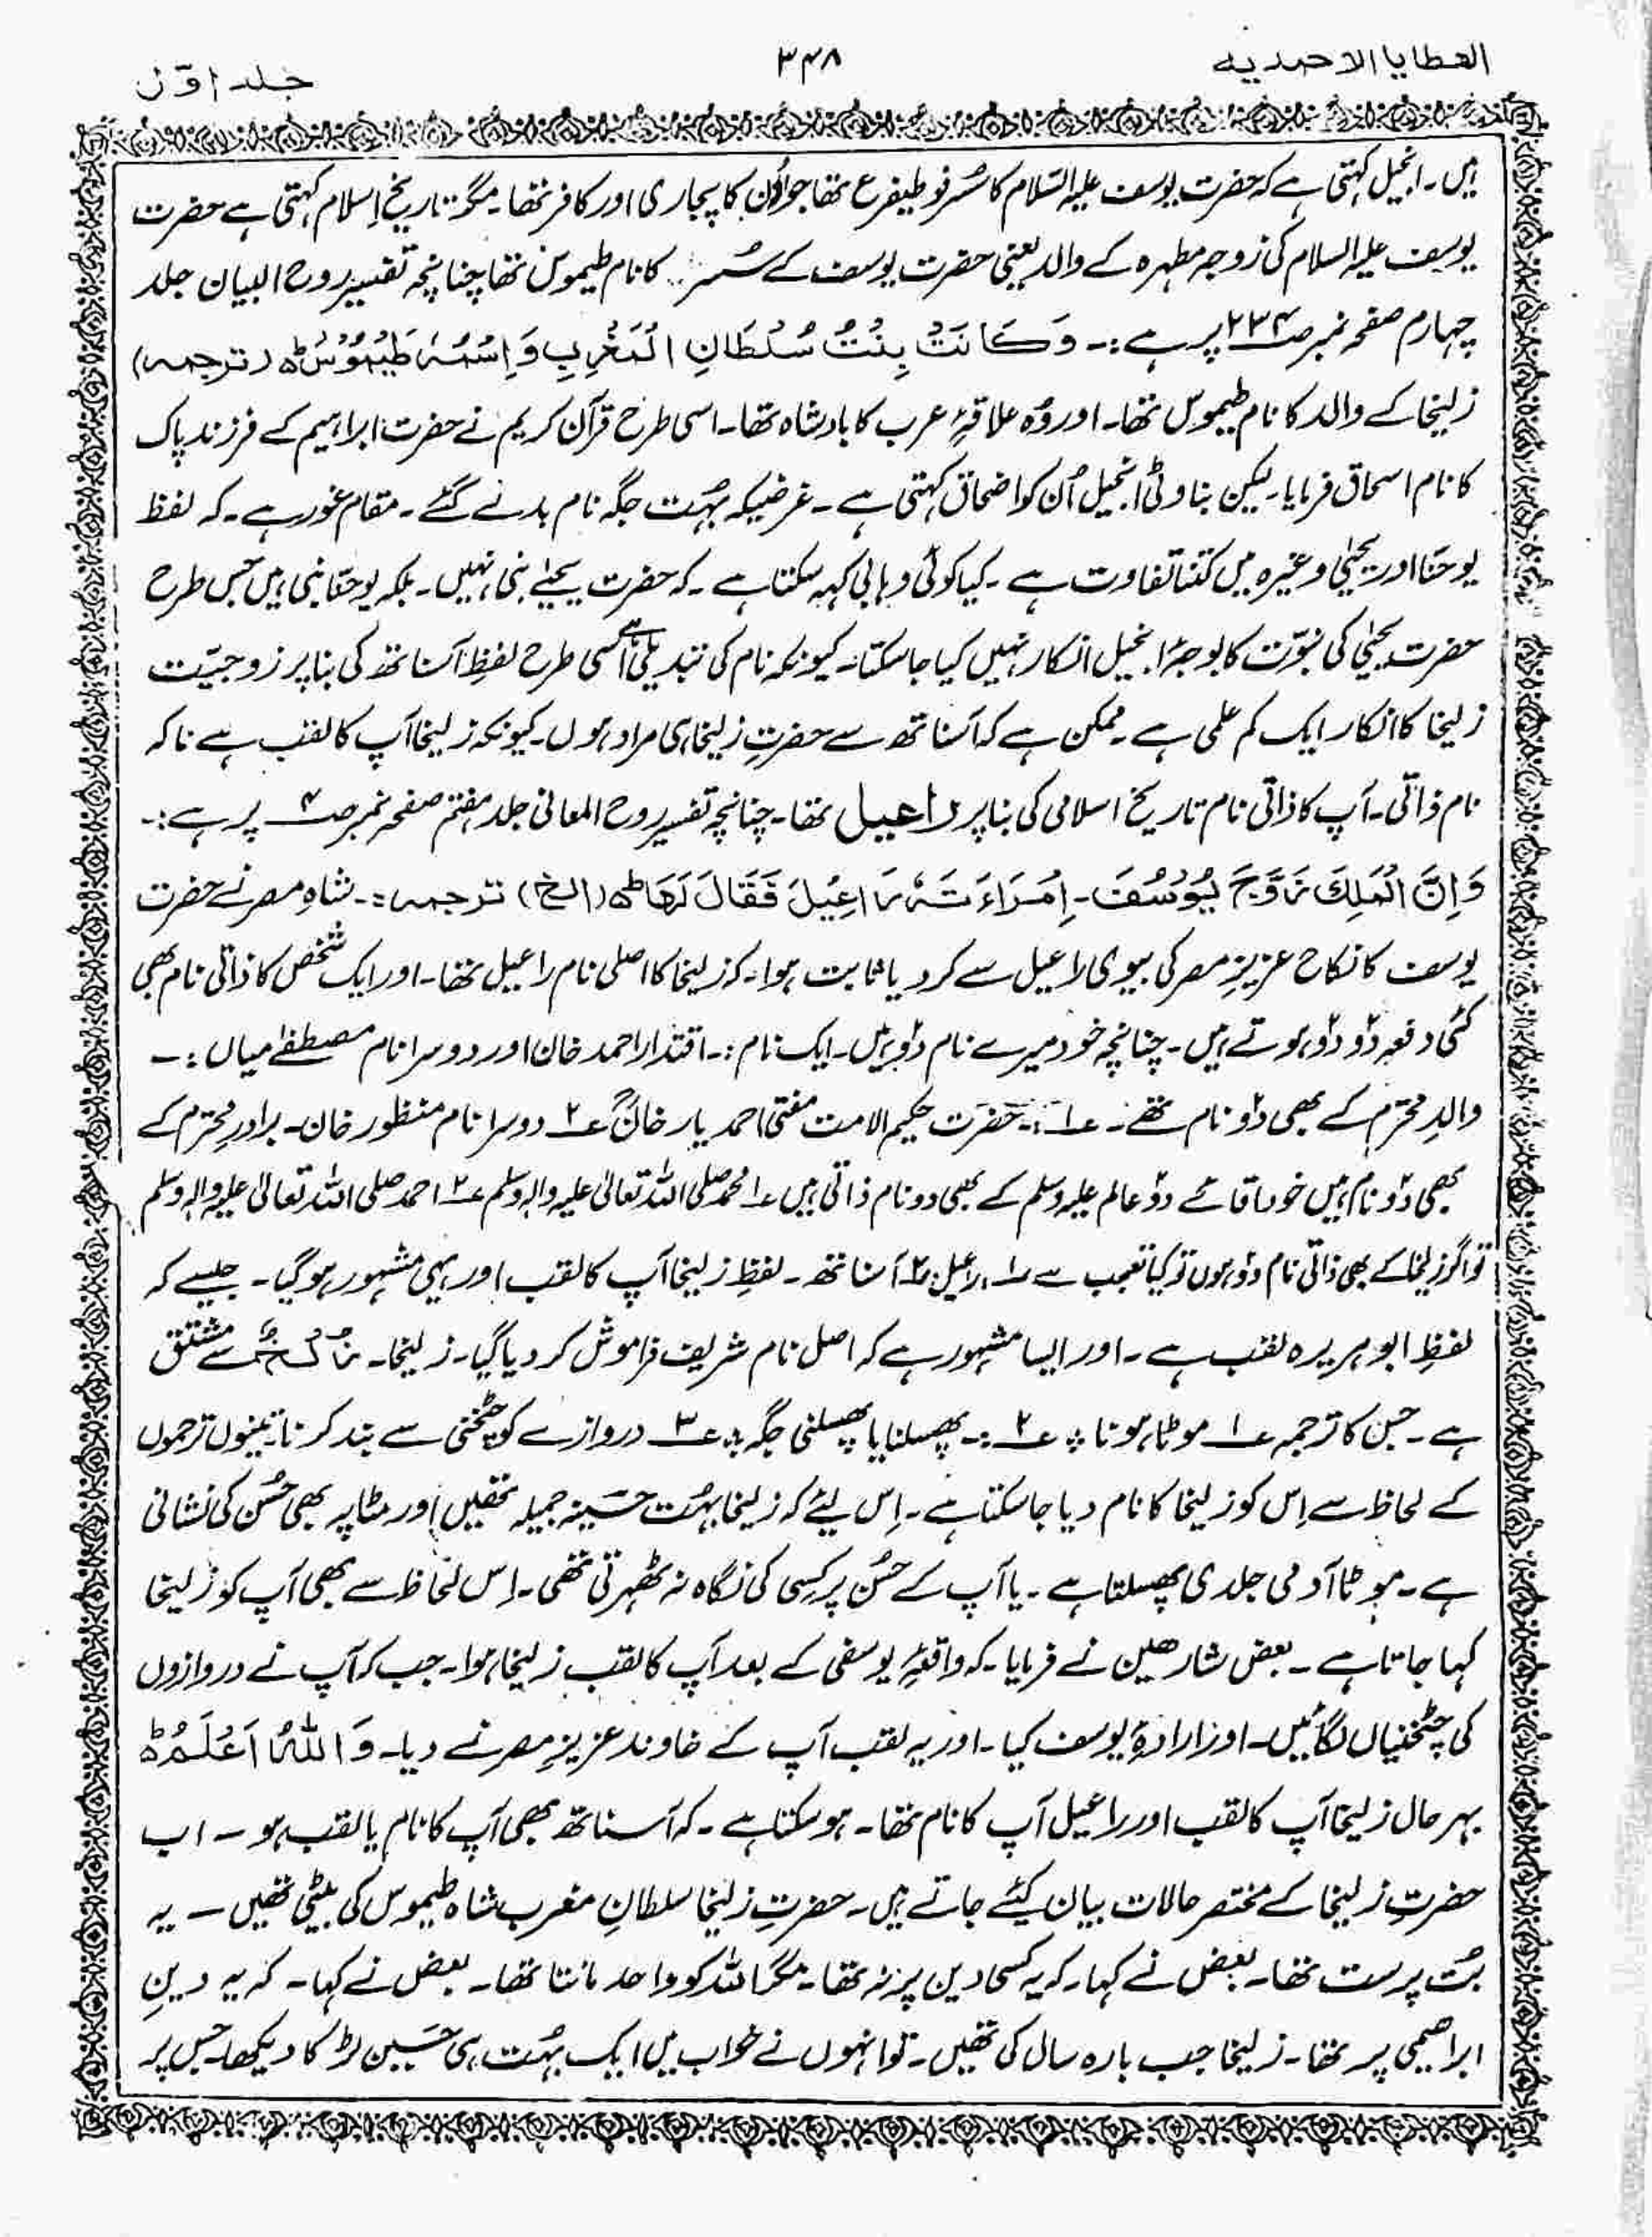 العطایا الاحمدیه
۳۴۸
جلد اوّل
ہیں۔ انجیل کہتی ہے کہ حضرت یوسف علیہ السّلام کا سُسر فوطیفرع تھا جو اُون کا پجاری اور کافر تھا۔ مگر تاریخِ اسلام کہتی ہے حضرت
یوسف علیہ السلام کی زوجہ مطہرہ کے والد یعنی حضرت یوسف کے سُسر کا نام طیموس تھا چنانچہ تفسیر روح البیان جلد
چہارم صفحہ نمبر صـ۲۳۴ پر ہے:۔ وَكَانَتْ بِنْتُ سُلْطَانِ الْمَغْرِبِ وَاِسْمُهٗ طَيْمُوْسُ ط (ترجمہ)
زلیخا کے والد کا نام طیموس تھا۔ اور وُہ علاقۂ عرب کا بادشاہ تھا۔ اسی طرح قرآن کریم نے حضرت ابراہیم کے فرزند پاک
کا نام اسحاق فرمایا۔ لیکن بناوٹی انجیل اُن کو اضحاق کہتی ہے۔ غرضیکہ بہُت جگہ نام بدلے گئے۔ مقام غور ہے۔ کہ لفظ
یوحنّا اور یحییٰ وغیرہ میں کتنا تفاوت ہے۔ کیا کوئی وہابی کہہ سکتا ہے۔ کہ حضرت یحییٰ نبی نہیں۔ بلکہ یوحنّا نبی ہیں جس طرح
حضرت یحییٰ کی نبوّت کا بوجہ انجیل انکار نہیں کیا جا سکتا۔ کیونکہ نام کی تبدیلی ہے اسی طرح لفظِ آسناتھ کی بنا پر زوجیّت
زلیخا کا انکار ایک کم علمی ہے۔ ممکن ہے کہ آسناتھ سے حضرتِ زلیخا ہی مراد ہوں۔ کیونکہ زلیخا آپ کا لقب ہے نا کہ
نام ذاتی۔ آپ کا ذاتی نام تاریخ اسلامی کی بنا پر راعیل تھا۔ چنانچہ تفسیر روح المعانی جلد ہفتم صفحہ نمبر صـ۴ پر ہے:۔
وَاِنَّ الْمَلِكَ زَوَّجَ يُوْسُفَ۔ اِمْرَاَءَتَهٗ رَاعِيْلَ فَقَالَ لَهَا ط (الخ) ترجمہ:۔ شاہِ مصر نے حضرت
یوسف کا نکاح عزیزِ مصر کی بیوی راعیل سے کر دیا ثابت ہوا۔ کہ زلیخا کا اصلی نام راعیل تھا۔ اور ایک شخص کا ذاتی نام بھی
کئی دفعہ دوؤ دوؤ ہوتے ہیں۔ چنانچہ خود میرے نام دوؤ ہیں۔ ایک نام:۔ اقتدار احمد خان اور دوسرا نام مصطفےٰ میاں:۔
والدِ محترم کے بھی دوؤ نام تھے۔ عـ۱:۔ حضرت حکیم الامت مفتی احمد یار خانؒ عـ۲ دوسرا نام منظور خان۔ برادرِ محترم کے
بھی دوؤ نام ہیں خود آقائے دوؤ عالم علیہ وسلم کے بھی دو نام ذاتی ہیں عـ۱ محمد صلی اللہ تعالیٰ علیہ والہ وسلم عـ۲ احمد صلی اللہ تعالیٰ علیہ والہ وسلم
تو اگر زلیخا کے بھی ذاتی نام دوؤ ہوں تو کیا تعجب ہے عـ۱ راعیل عـ۲ آسناتھ۔ لفظِ زلیخا آپ کا لقب اور یہی مشہور ہو گیا۔ جیسے کہ
لفظِ ابوہریرہ لقب ہے۔ اور ایسا مشہور ہے کہ اصل نام شریف فراموش کر دیا گیا۔ زلیخا۔ زُلُخٌ سے مشتق
ہے۔ جس کا ترجمہ عـ۱ موٹا ہونا ؛ عـ۲:۔ پھسلنا یا پھسلنی جگہ ؛ عـ۳ دروازے کو چٹخنی سے بند کرنا۔ تینوں ترجموں
کے لحاظ سے اِس کو زلیخا کا نام دیا جا سکتا ہے۔ اِس لیئے کہ زلیخا بہُت حسَینہ جمیلہ تھیں اور مٹاپہ بھی حُسن کی نشانی
ہے۔ موٹا آدمی جلدی پھسلتا ہے۔ یا آپ کے حُسن پر کِسی کی نگاہ نہ ٹھہرتی تھی۔ اِس لحاظ سے بھی آپ کو زلیخا
کہا جاتا ہے۔ بعض شارحین نے فرمایا۔ کہ واقعۂ یوسفی کے بعد آپ کا لقب زلیخا ہوا۔ جب کہ آپ نے دروازوں
کی چٹخنیاں لگائیں۔ اور ارادۂ یوسف کیا۔ اور یہ لقب آپ کے خاوند عزیزِ مصر نے دیا۔ وَاللّٰهُ اَعْلَمُ ط
بہر حال زلیخا آپ کا لقب اور راعیل آپ کا نام تھا۔ ہو سکتا ہے۔ کہ آسناتھ بھی آپ کا نام یا لقب ہو۔ اب
حضرتِ زلیخا کے مختصر حالات بیان کیئے جاتے ہیں۔ حضرتِ زلیخا سلطانِ مغرب شاہ طیموس کی بیٹی تھیں۔ یہ
بُت پرست تھا۔ بعض نے کہا۔ کہ یہ کسی دین پر نہ تھا۔ مگر اللہ کو واحد مانتا تھا۔ بعض نے کہا۔ کہ یہ دینِ
ابراھیمی پر تھا۔ زلیخا جب بارہ سال کی تھیں۔ تو انہوں نے خواب میں ایک بہُت ہی حسَین لڑکا دیکھا۔ جس پر